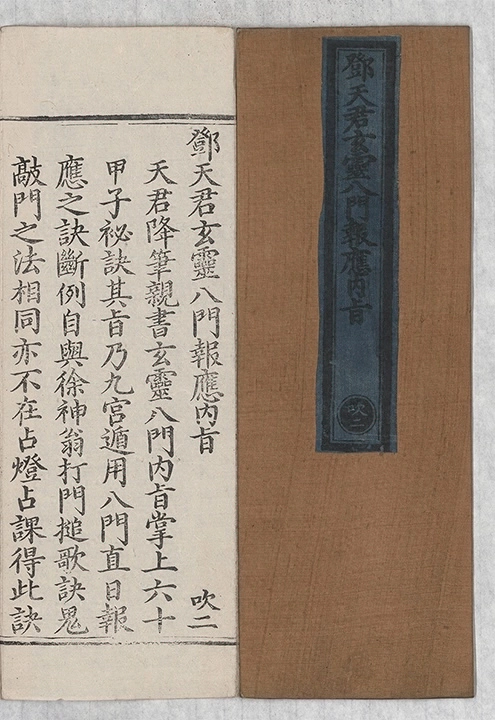 鄧天君玄靈八門報應內旨
吹二
鄧天君玄靈八門報應內旨
吹二
天君降筆親書玄靈八門內旨掌上六十
甲子祕訣其旨乃九宮遁用八門直日報
應之訣斷例自與徐神翁打門搥歌訣鬼
敲門之法相同亦不在占燈占課得此訣